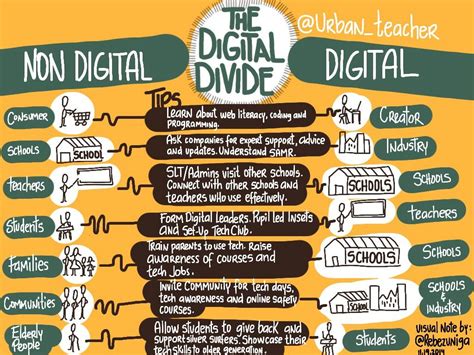 THE
DIGITAL
DIVIDE
@Urban_teacher
NON DIGITAL
DIGITAL
Tips
CONSUMER
LEARN about web literacy, coding and
PROGRAMMING.
CREATOR
SCHOOLS
SCHOOL
Ask companies for expert support, advice
and updates. Understand SAMR.
INDUSTRY
teachers
SLT/Admins visit other schools.
Connect with other schools and
teachers who use effectively.
SCHOOLS
SCHOOLS
Students
FORM Digital Leaders. Pupil led Insets
and Set-Up Tech Club.
teachers
Families
Train parents to use tech. Raise
awareness of courses and
tech Jobs.
SCHOOLS
SCHOOLS
Communities
Invite Community for tech days,
tech awareness and online safety
courses.
SCHOOLS
&
INDUSTRY
Elderly
People
Allow students to give back and
support silver surfers. Showcase their
tech skills to older generation.
Students
visual Note by:
@Kebezuniga